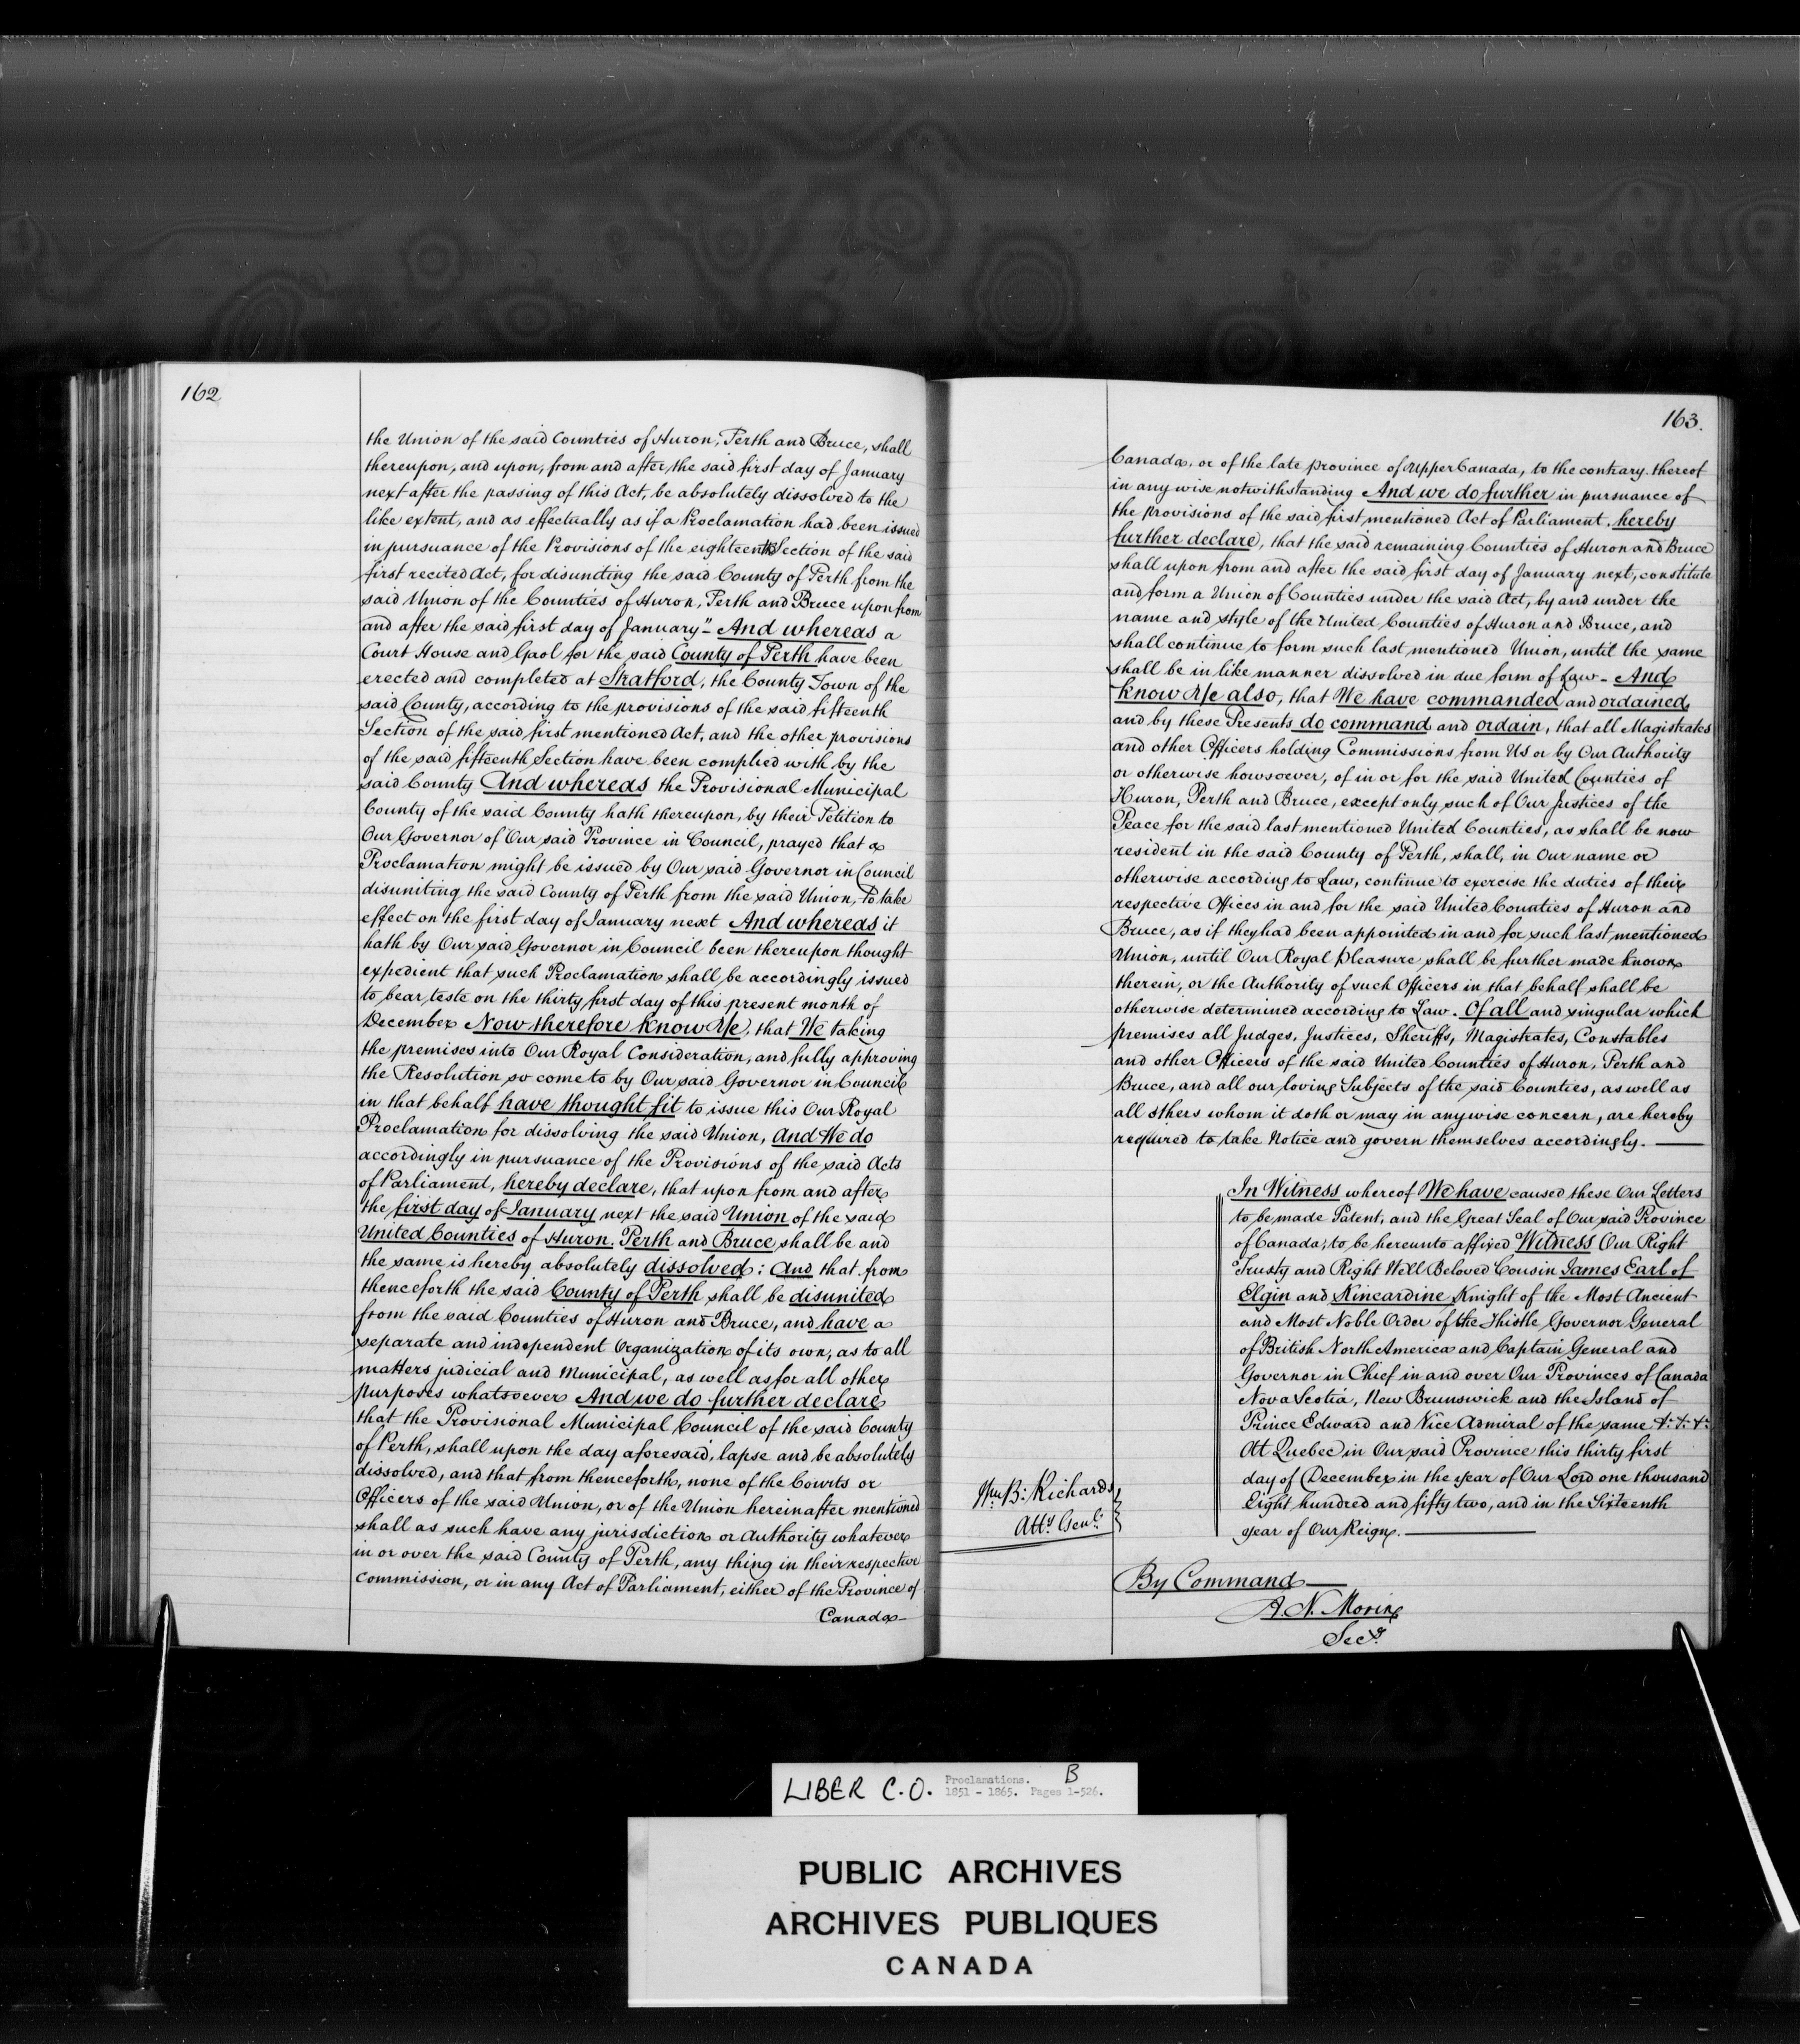 162
the Union of the said Counties of Huron, Perth and Bruce, shall
thereupon, and upon, from and after the said first day of January
next after the passing of this Act, be absolutely dissolved to the
like extent, and as effectually as if a Proclamation had been issued
in pursuance of the Provisions of the eighteenth Section of the said
first recited Act, for disuniting the said County of Perth from the
said Union of the Counties of Huron, Perth and Bruce upon from
and after the said first day of January" - And whereas a
Court House and Gaol for the said County of Perth have been
erected and completed at Stratford, the County Town of the
said County, according to the provisions of the said fifteenth
Section of the said first mentioned Act, and the other provisions
of the said fifteenth Section have been complied with by the
said County And whereas the Provisional Municipal
County of the said County hath thereupon, by their Petition to
Our Governor of Our said Province in Council, prayed that a
Proclamation might be issued by Our said Governor in Council
disuniting the said County of Perth from the said Union, to take
effect on the first day of January next And whereas it
hath by Our said Governor in Council been thereupon thought
expedient that such Proclamation shall be accordingly issued
to bear teste on the thirty first day of this present month of
December Now therefore Know Ye, that We taking
the premises into Our Royal Consideration, and fully approving
the Resolution so come to by Our said Governor in Council
in that behalf have thought fit to issue this Our Royal
Proclamation for dissolving the said Union, And We do
accordingly in pursuance of the Provisions of the said Acts
of Parliament, hereby declare, that upon from and after
the first day of January next the said Union of the said
United Counties of Huron. Perth and Bruce shall be and
the same is hereby absolutely dissolved: And that from
thenceforth the said County of Perth shall be disunited
from the said Counties of Huron and Bruce, and have a
separate and independent Organization of its own, as to all
matters judicial and Municipal, as well as for all other
purposes whatsoever And we do further declare
that the Provisional Municipal Council of the said County
of Perth, shall upon the day aforesaid, lapse and be absolutely
dissolved, and that from thenceforth, none of the Courts or
Officers of the said Union, or of the Union hereinafter mentioned
shall as such have any jurisdiction or Authority whatever
in or over the said County of Perth, any thing in their respective
Commission, or in any Act of Parliament, either of the Province of
Canada -
163.
Canada, or of the late province of Upper Canada, to the contrary thereof
in any wise notwithstanding And we do further in pursuance of
the provisions of the said first mentioned Act of Parliament. hereby
further declare, that the said remaining Counties of Huron and Bruce
shall upon from and after the said first day of January next, constitute
and form a Union of Counties under the said Act, by and under the
name and style of the United Counties of Huron and Bruce, and
shall continue to form such last mentioned Union, until the same
shall be in like manner dissolved in due form of Law - And
Know Ye also, that We have commanded and ordained,
and by these Presents do command and ordain, that all Magistrates
and other Officers holding Commissions from Us or by Our Authority
or otherwise howsoever, of in or for the said United Counties of
Huron, Perth and Bruce, except only such of Our Justices of the
Peace for the said last mentioned United Counties, as shall be now
resident in the said County of Perth, shall, in Our name or
otherwise according to Law, continue to exercise the duties of their
respective Offices in and for the said United Counties of Huron and
Bruce, as if they had been appointed in and for such last mentioned
Union, until Our Royal pleasure shall be further made known
therein, or the Authority of such Officers in that behalf shall be
otherwise determined according to Law. Of all and singular which
premises all Judges, Justices, Sheriffs, Magistrates, Constables
and other Officers of the said United Counties of Huron, Perth and
Bruce, and all our loving Subjects of the said Counties, as well as
all others whom it doth or may in anywise concern, are hereby
required to take Notice and govern themselves accordingly.
In Witness whereof We have caused these Our Letters
to be made Patent, and the Great Seal of Our said Province
of Canada, to be hereunto affixed Witness Our Right
Trusty and Right Well Beloved Cousin James Earl of
Elgin and Kincardine Knight of the Most Ancient
and Most Noble Order of the Thistle Governor General
of British North America and Captain General and
Governor in Chief in and over Our Provinces of Canada
Nova Scotia, New Brunswick and the Island of
Prince Edward and Vice Admiral of the same &: &: &:
At Quebec in Our said Province this thirty first
day of December in the year of Our Lord one thousand
Eight hundred and fifty two, and in the Sixteenth
year of Our Reign.
Wm B: Richards
Atty Genl:
By Command
A. N. Morin
Secy.
LIBER C.O. Proclamations. B
1851 - 1865. Pages 1-526.
PUBLIC ARCHIVES
ARCHIVES PUBLIQUES
CANADA